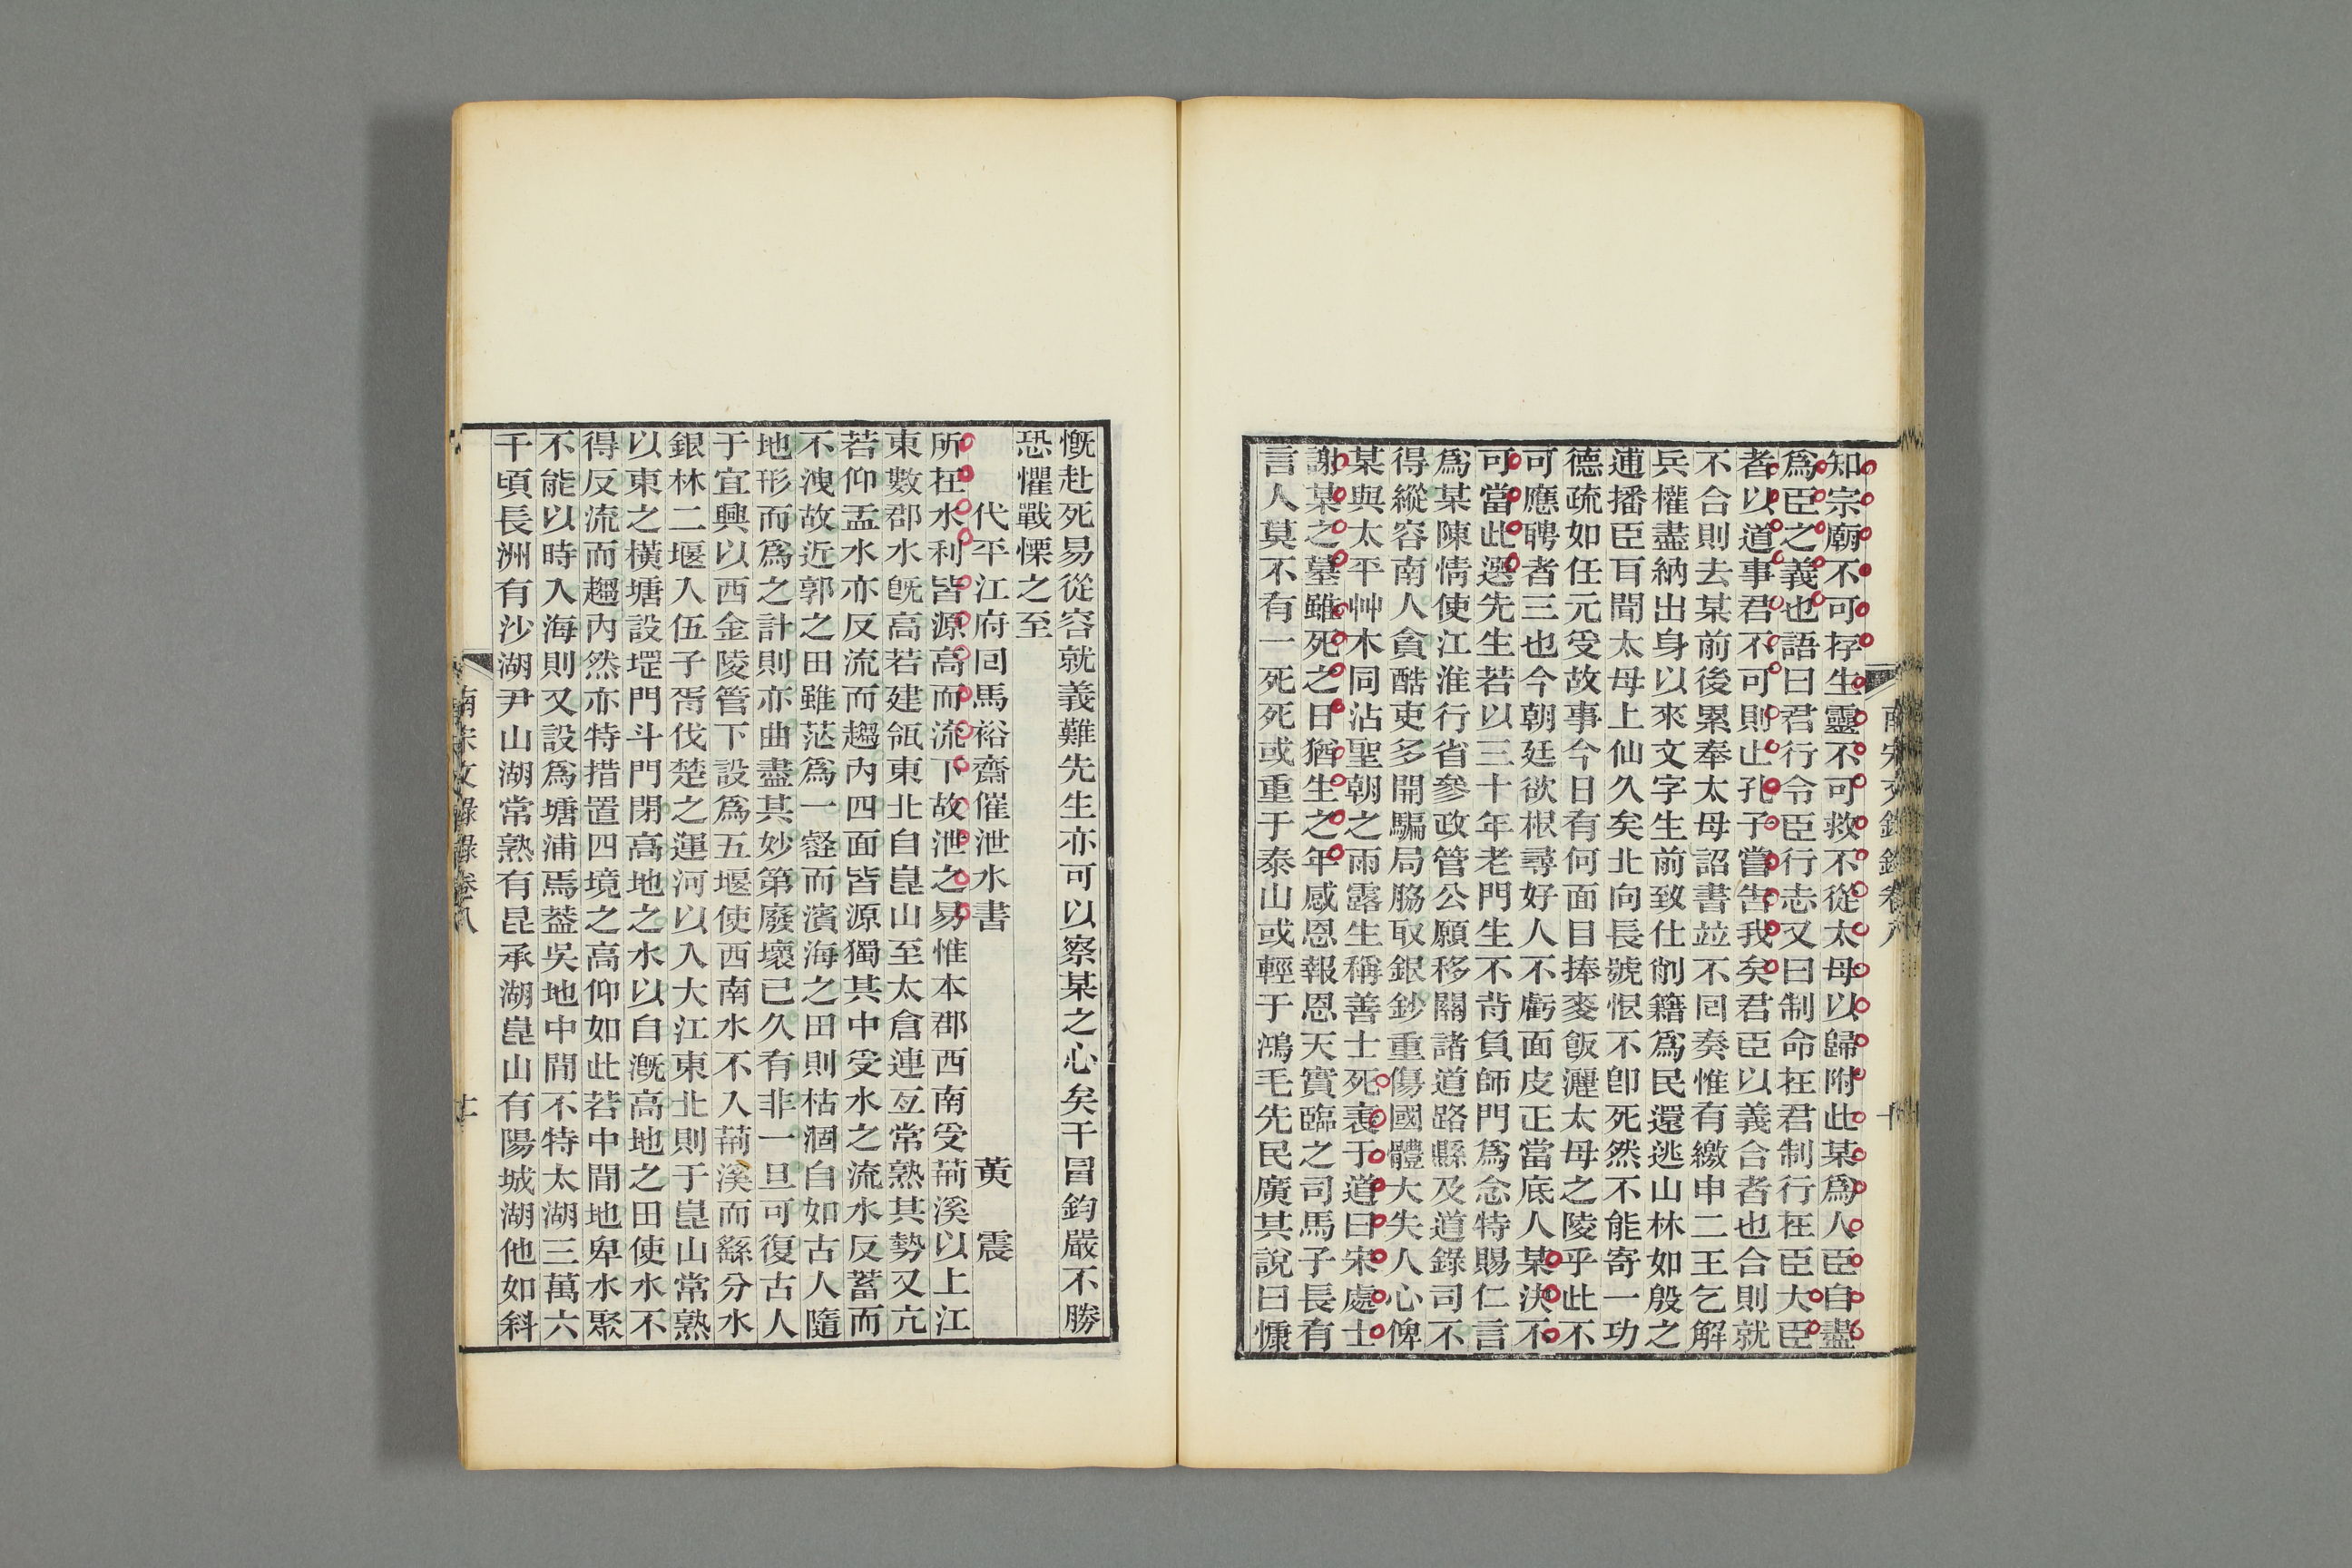 南宋文錄錄卷八
十
知宗廟不可存生靈不可救不從太母以歸附此某爲人臣自盡
爲臣之義也語曰君行令臣行志又曰制命在君制行在臣大臣
者以道事君不可則止孔子嘗告我矣君臣以義合者也合則就
不合則去某前後累奉太母詔書並不回奏惟有繳申二王乞解
兵權盡納出身以來文字生前致仕削籍爲民還逃山林如殷之
逋播臣耳聞太母上仙久矣北向長號恨不卽死然不能寄一功
德疏如任元受故事今日有何面目捧麥飯灑太母之陵乎此不
可應聘者三也今朝廷欲根尋好人不虧面皮正當底人某決不
可當此選先生若以三十年老門生不背負師門爲念特賜仁言
爲某陳情使江淮行省參政管公願移關諸道路縣及道錄司不
得縱容南人貪酷吏多開騙局脅取銀鈔重傷國體大失人心俾
某與太平艸木同沾聖朝之雨露生稱善士死表于道曰宋處士
謝某之墓雖死之日猶生之年感恩報恩天實臨之司馬子長有
言人莫不有一死死或重于泰山或輕于鴻毛先民廣其說曰慷
慨赴死易從容就義難先生亦可以察某之心矣干冒鈞嚴不勝
恐懼戰慄之至
代平江府回馬裕齋催泄水書　黃　震
所在水利皆源高而流下故泄之易惟本郡西南受荊溪以上江
東數郡水旣高若建瓴東北自崑山至太倉連亙常熟其勢又亢
若仰盂水亦反流而趨內四面皆源獨其中受水之流水反蓄而
不洩故近郭之田雖茫爲一壑而濱海之田則枯涸自如古人隨
地形而爲之計則亦曲盡其妙第廢壞已久有非一旦可復古人
于宜興以西金陵管下設爲五堰使西南水不入荊溪而繇分水
銀林二堰入伍子胥伐楚之運河以入大江東北則于崑山常熟
以東之橫塘設堽門斗門閉高地之水以自漑高地之田使水不
得反流而趨內然亦特措置四境之高仰如此若中間地卑水聚
不能以時入海則又設爲塘浦焉葢吳地中間不特太湖三萬六
千頃長洲有沙湖尹山湖常熟有昆承湖崑山有陽城湖他如斜
南宋文錄錄卷八
十一